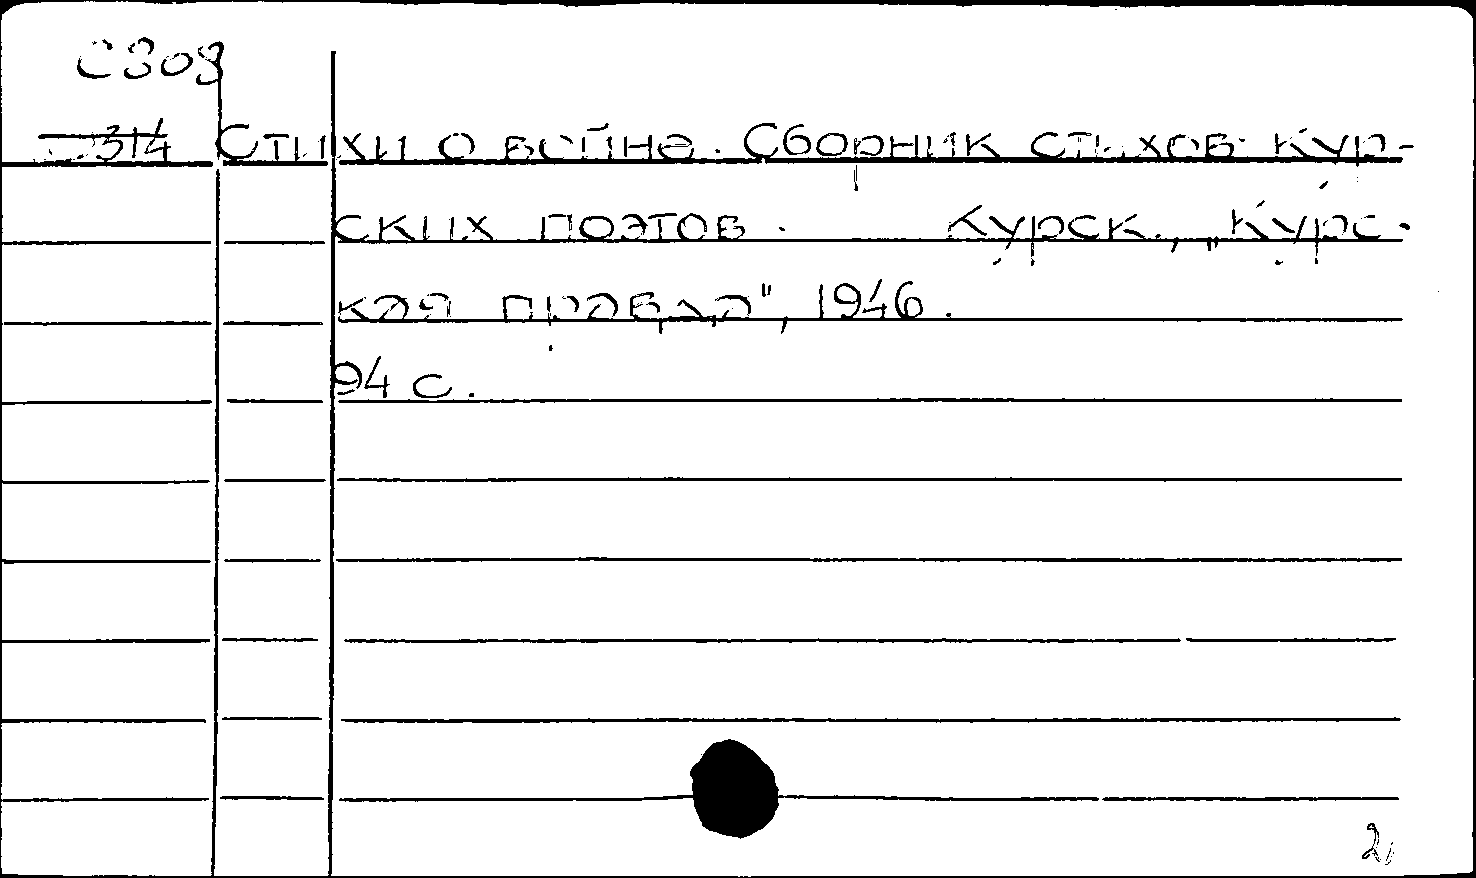 С809
314 Стихи о войне. Сборник стихов кур-
ских поэтов. Курск., „Курс-
кая правда", 1946.
94 с.
2,